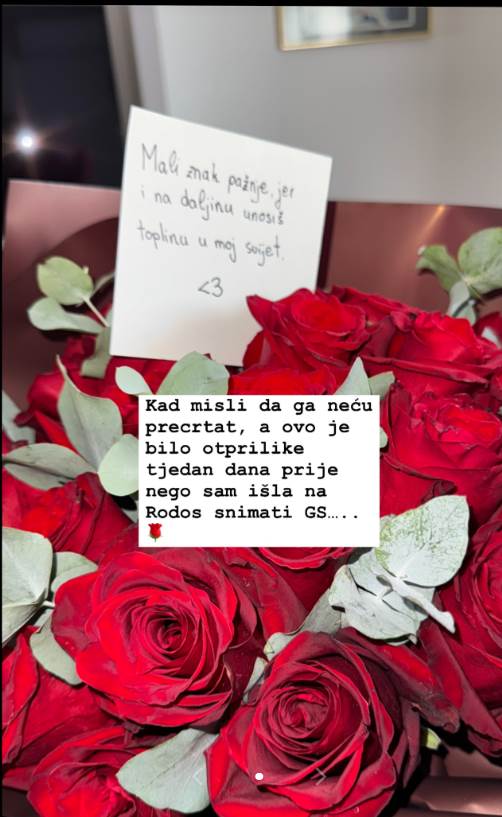 Mali znak pažnje, jer
i na daljinu unosiš
toplinu u moj svijet.
<3
Kad misli da ga neću
precrtat, a ovo je
bilo otprilike
tjedan dana prije
nego sam išla na
Rodos snimati GS.....
🌹